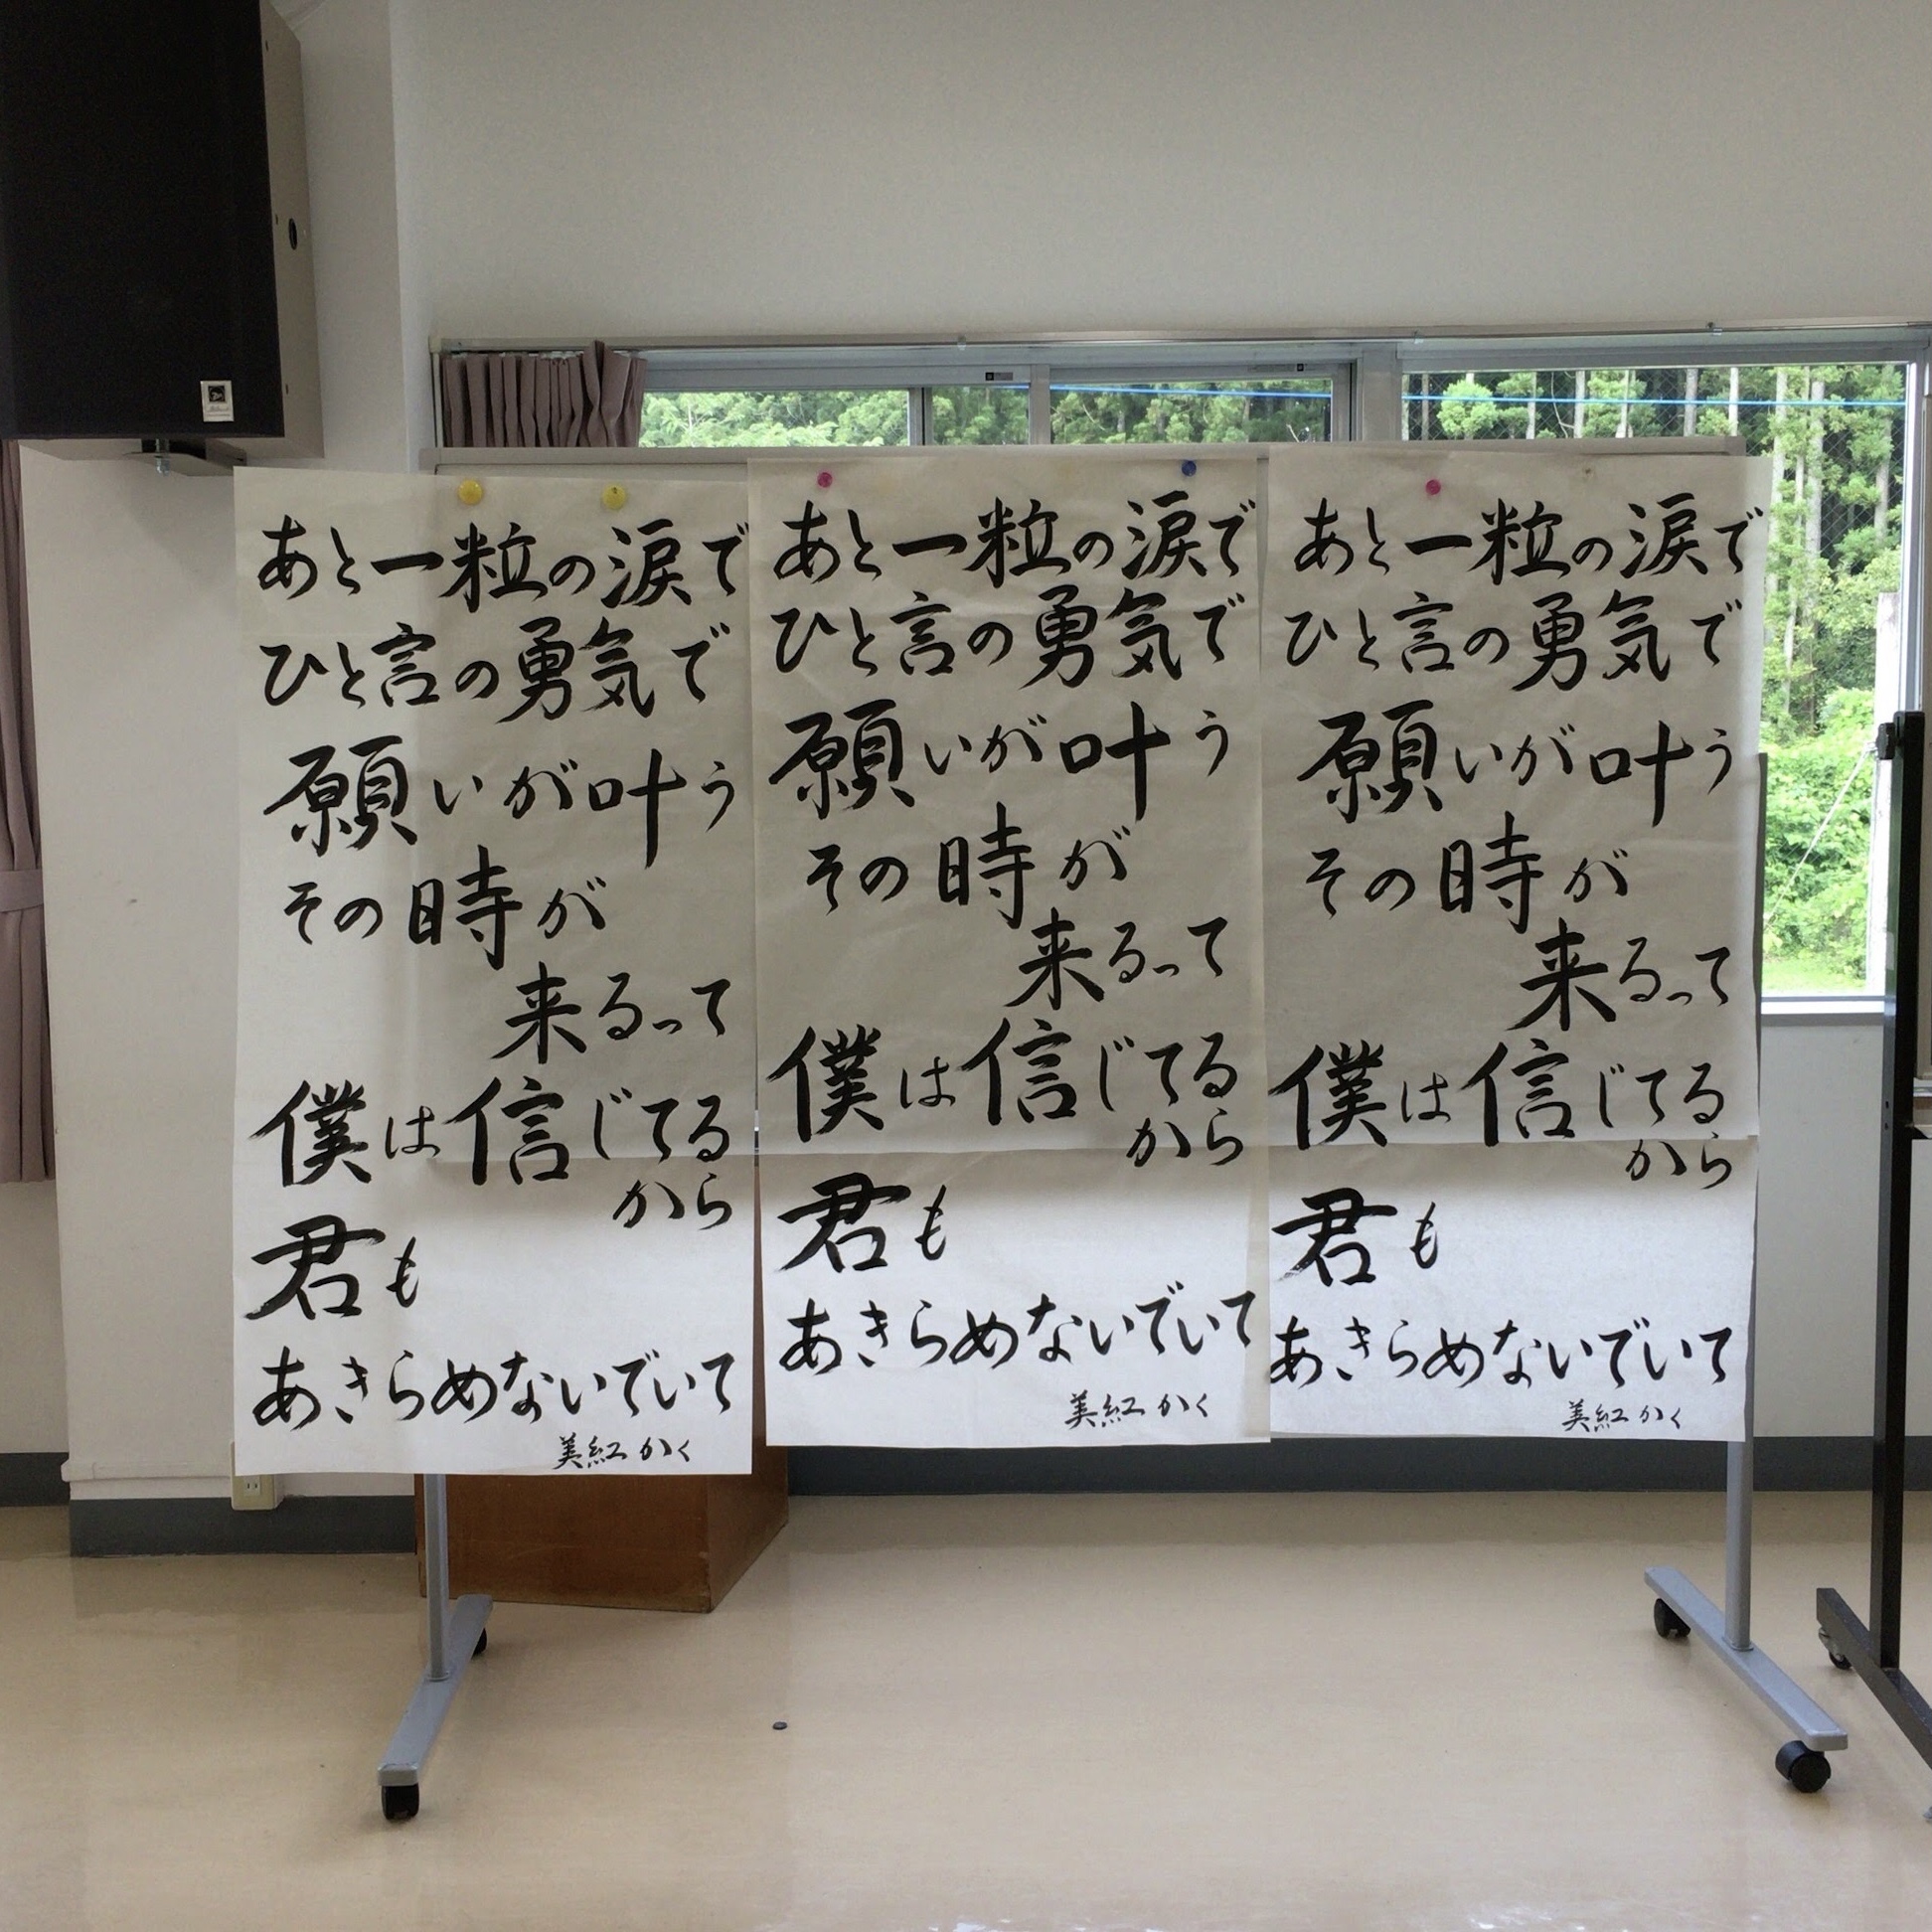 あと一粒の涙で
ひと言の勇気で
願いが叶う
その時が
来るって
僕は信じてる
から
君も
あきらめないでいて
美紅かく
あと一粒の涙で
ひと言の勇気で
願いが叶う
その時が
来るって
僕は信じてる
から
君も
あきらめないでいて
美紅かく
あと一粒の涙で
ひと言の勇気で
願いが叶う
その時が
来るって
僕は信じてる
から
君も
あきらめないでいて
美紅かく